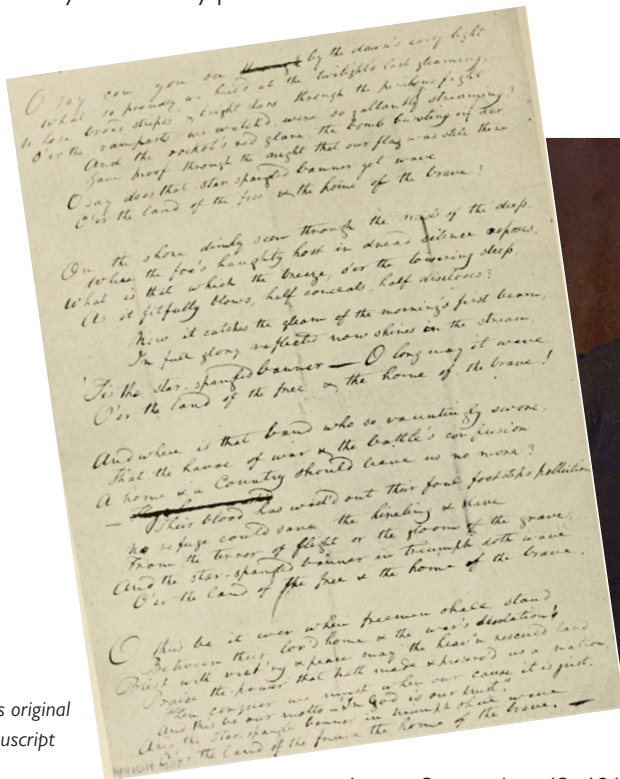 O say can you see through by the dawn's early light
What so proudly we hail'd at the twilight's last gleaming,
Whose broad stripes & bright stars through the perilous fight
O'er the ramparts we watch'd, were so gallantly streaming?
And the rocket's red glare, the bomb bursting in air
Gave proof through the night that our flag was still there
O say does that star-spangled banner yet wave
O'er the land of the free & the home of the brave?
On the shore dimly seen through the mists of the deep,
Where the foe's haughty host in dread silence reposes,
What is that which the breeze, o'er the towering steep,
As it fitfully blows, half conceals, half discloses?
Now it catches the gleam of the morning's first beam,
In full glory reflected now shines in the stream,
'Tis the star-spangled banner — O long may it wave
O'er the land of the free & the home of the brave!
And where is that band who so vauntingly swore,
That the havoc of war & the battle's confusion
A home & a Country should leave us no more?
— Their blood has wash'd out their foul footsteps pollution
No refuge could save the hireling & slave
From the terror of flight or the gloom of the grave,
And the star-spangled banner in triumph doth wave
O'er the land of the free & the home of the brave.
O thus be it ever when freemen shall stand
Between their lov'd home & the war's desolation!
Blest with vict'ry & peace may the heav'n rescued land
Praise the power that hath made & preserv'd us a nation!
Then conquer we must, when our cause it is just,
And this be our motto — "In God is our trust,"
And the star-spangled banner in triumph shall wave
O'er the land of the free & the home of the brave. —
s original
uscript